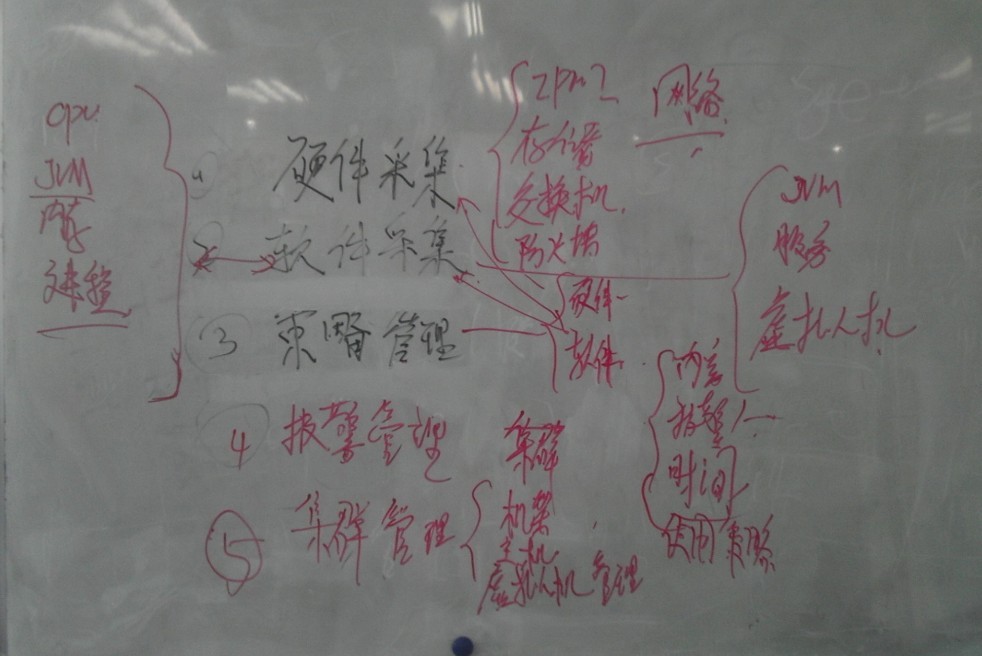 cpu
JVM
内存
进程
1
硬件采集
2
软件采集
3
策略管理
4
报警管理
5
集群管理
网络
存储
交换机
防火墙
硬件
软件
JVM
服务
虚拟机
内容
报警人
时间
使用策略
集群
机架
主机
虚拟机管理